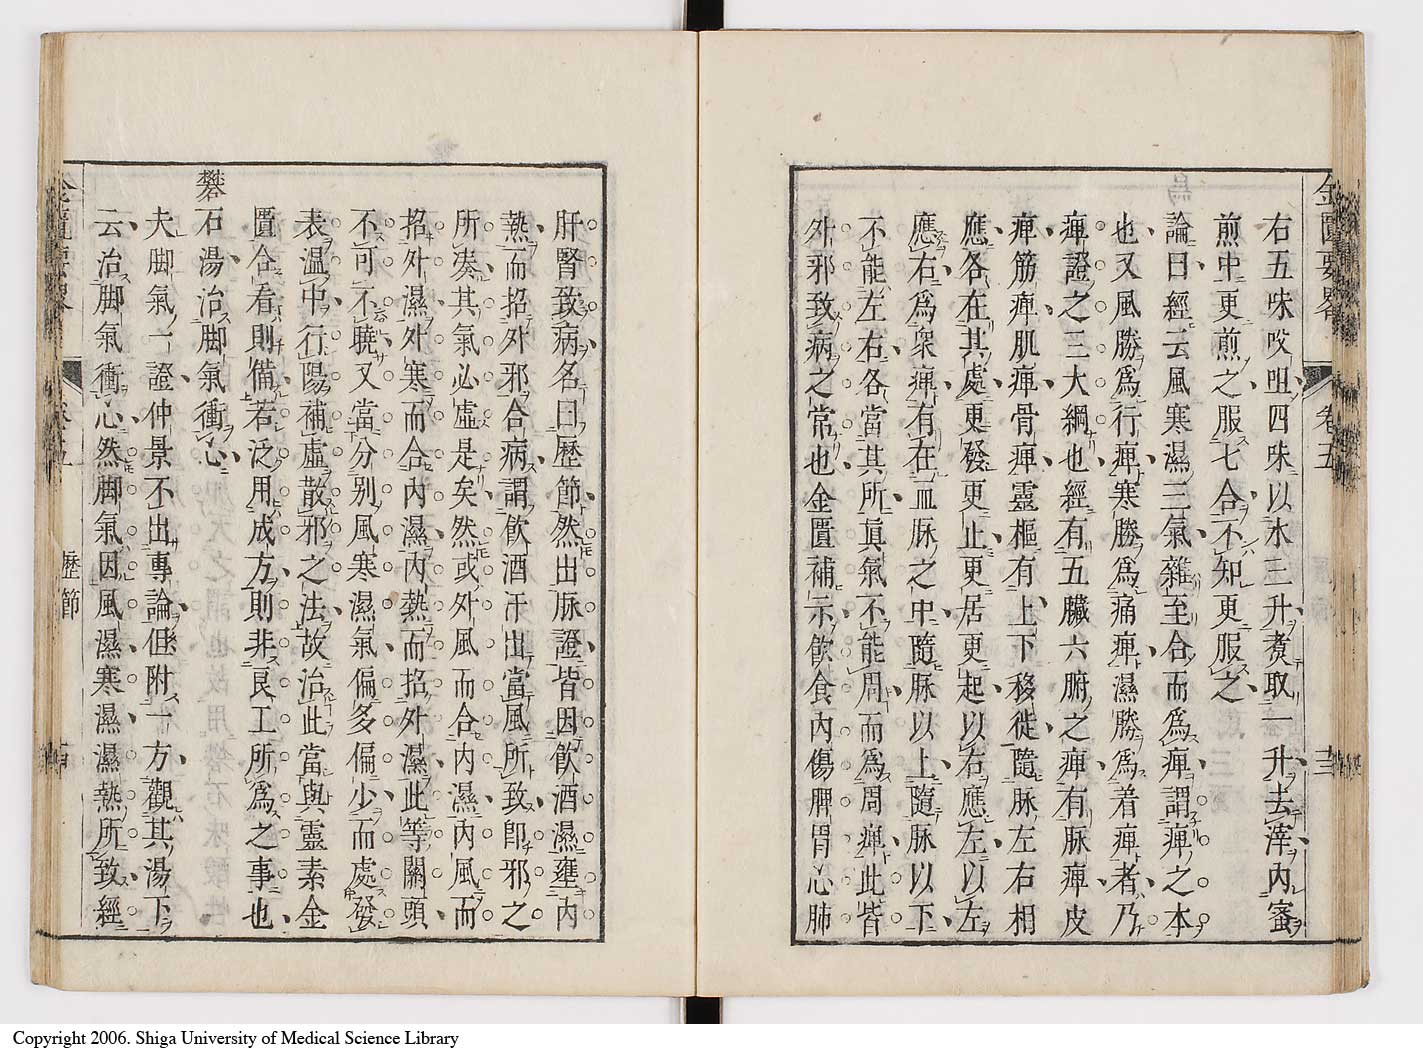 金匱要畧
卷五
右五味㕮咀四味以水三升煮取一升去滓內蜜
煎中更煎之服七合不知更服之
論曰經云風寒濕三氣雜至合而爲痺謂痺之本
也又風勝爲行痺寒勝爲痛痺濕勝爲着痺者乃
痺證之三大綱也經有五臟六腑之痺有脉痺皮
痺筋痺肌痺骨痺靈樞有上下移徙隨脉左右相
應各在其處更發更止更居更起以右應左以左
應右爲衆痺有在血脉之中隨脉以上隨脉以下
不能左右各當其所眞氣不能周而爲周痺此皆
外邪致病之常也金匱補示飮食內傷脾胃心肺
肝腎致病名曰歷節然出脉證皆因飮酒濕壅內
熱而招外邪合病謂飮酒汗出當風所致卽邪之
所湊其氣必虛是矣然或外風而合內濕內風而
招外濕外寒而合內濕內熱而招外濕此等關頭
不可不曉又當分别風寒濕氣偏多偏少而處發
表溫中行陽補虛散邪之法故治此當與靈素金
匱合看則備若泛用成方則非良工所爲之事也
礬石湯治脚氣衝心
夫脚氣一證仲景不出專論但附一方觀其湯下
云治脚氣衝心然脚氣因風濕寒濕濕熱所致經
歷節
Copyright 2006. Shiga University of Medical Science Library